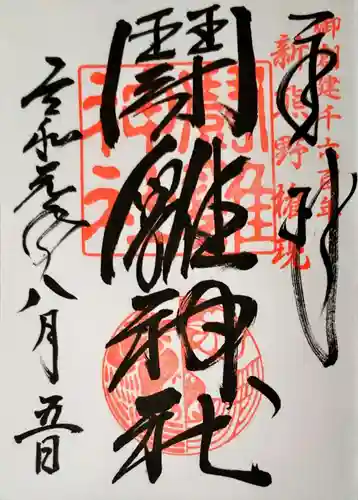 奉拝
御創建千六百年
新熊野權現
鬪雞神社
鬪雞神社
令和元年八月五日